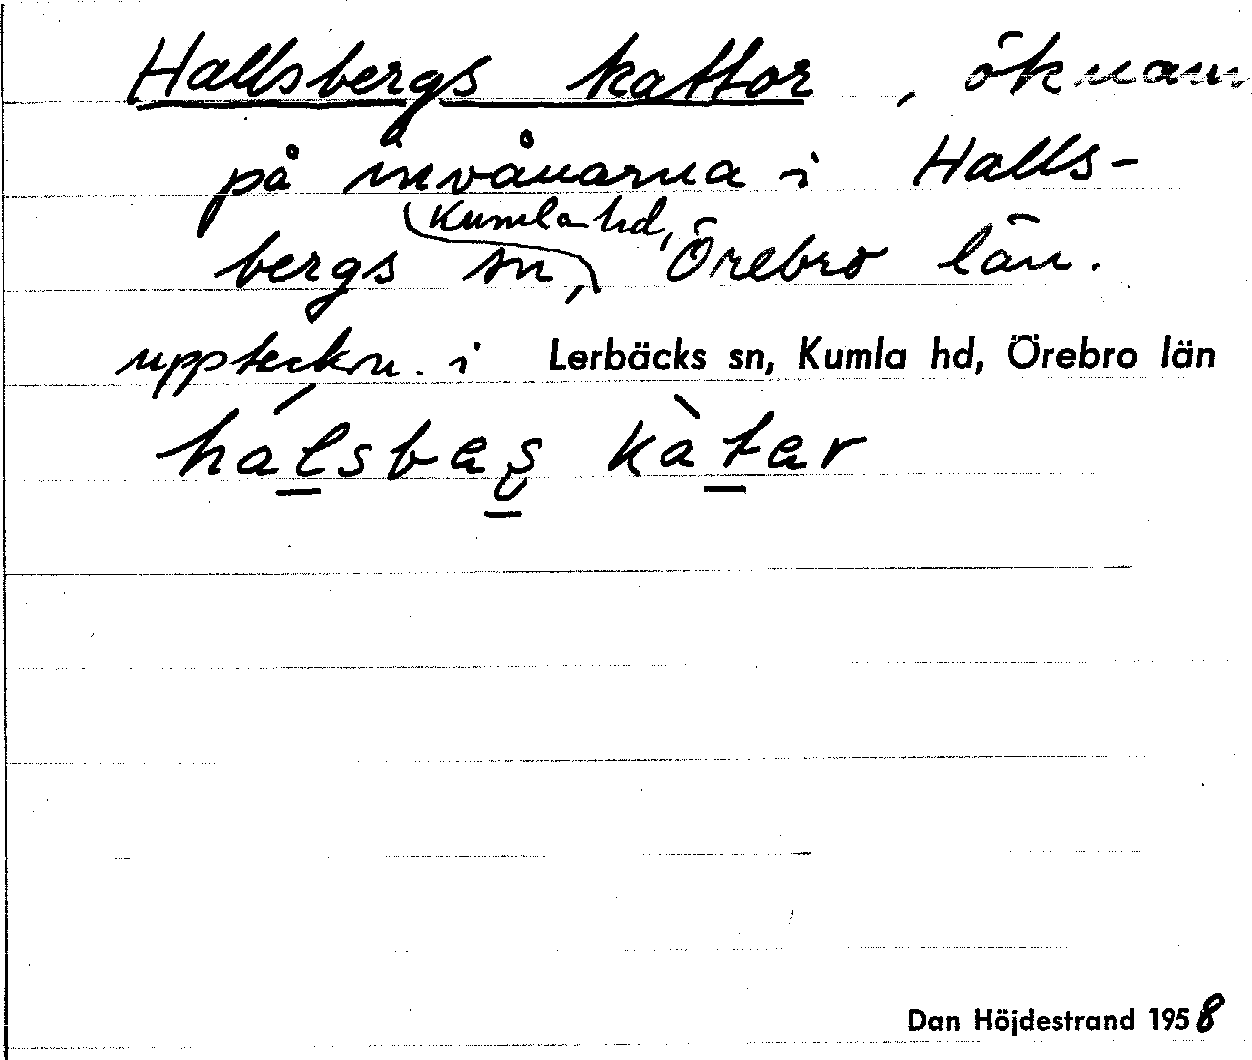 Hallsbergs kattor, öknamn
på invånarna i Halls-
bergs sn, Kumla hd, Örebro län.
uppteckn. i Lerbäcks sn, Kumla hd, Örebro län
hálsbaʂ kàtar
Dan Höjdestrand 1958